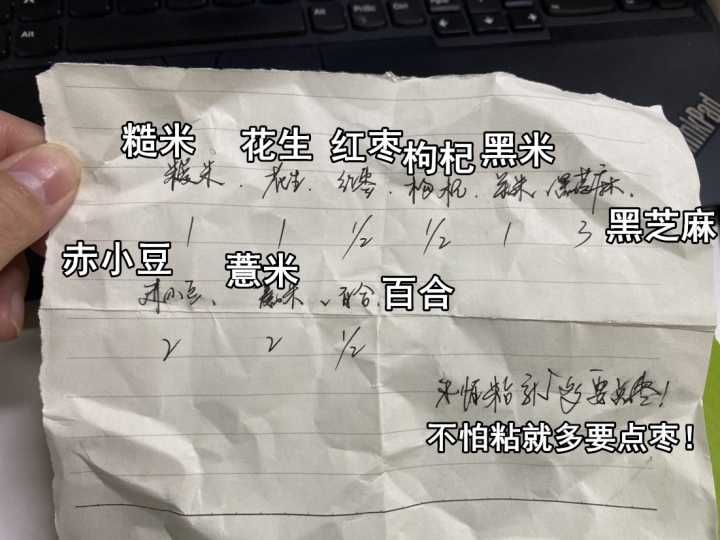 糙米 花生 红枣 枸杞 黑米
糙米、花生、红枣、枸杞、黑米、黑芝麻、
1 1 1/2 1/2 1 3 黑芝麻
赤小豆 薏米 百合
赤小豆、薏米、百合
2 2 1/2
不怕粘就多要点枣!
不怕粘就多要点枣!
ThinkPad